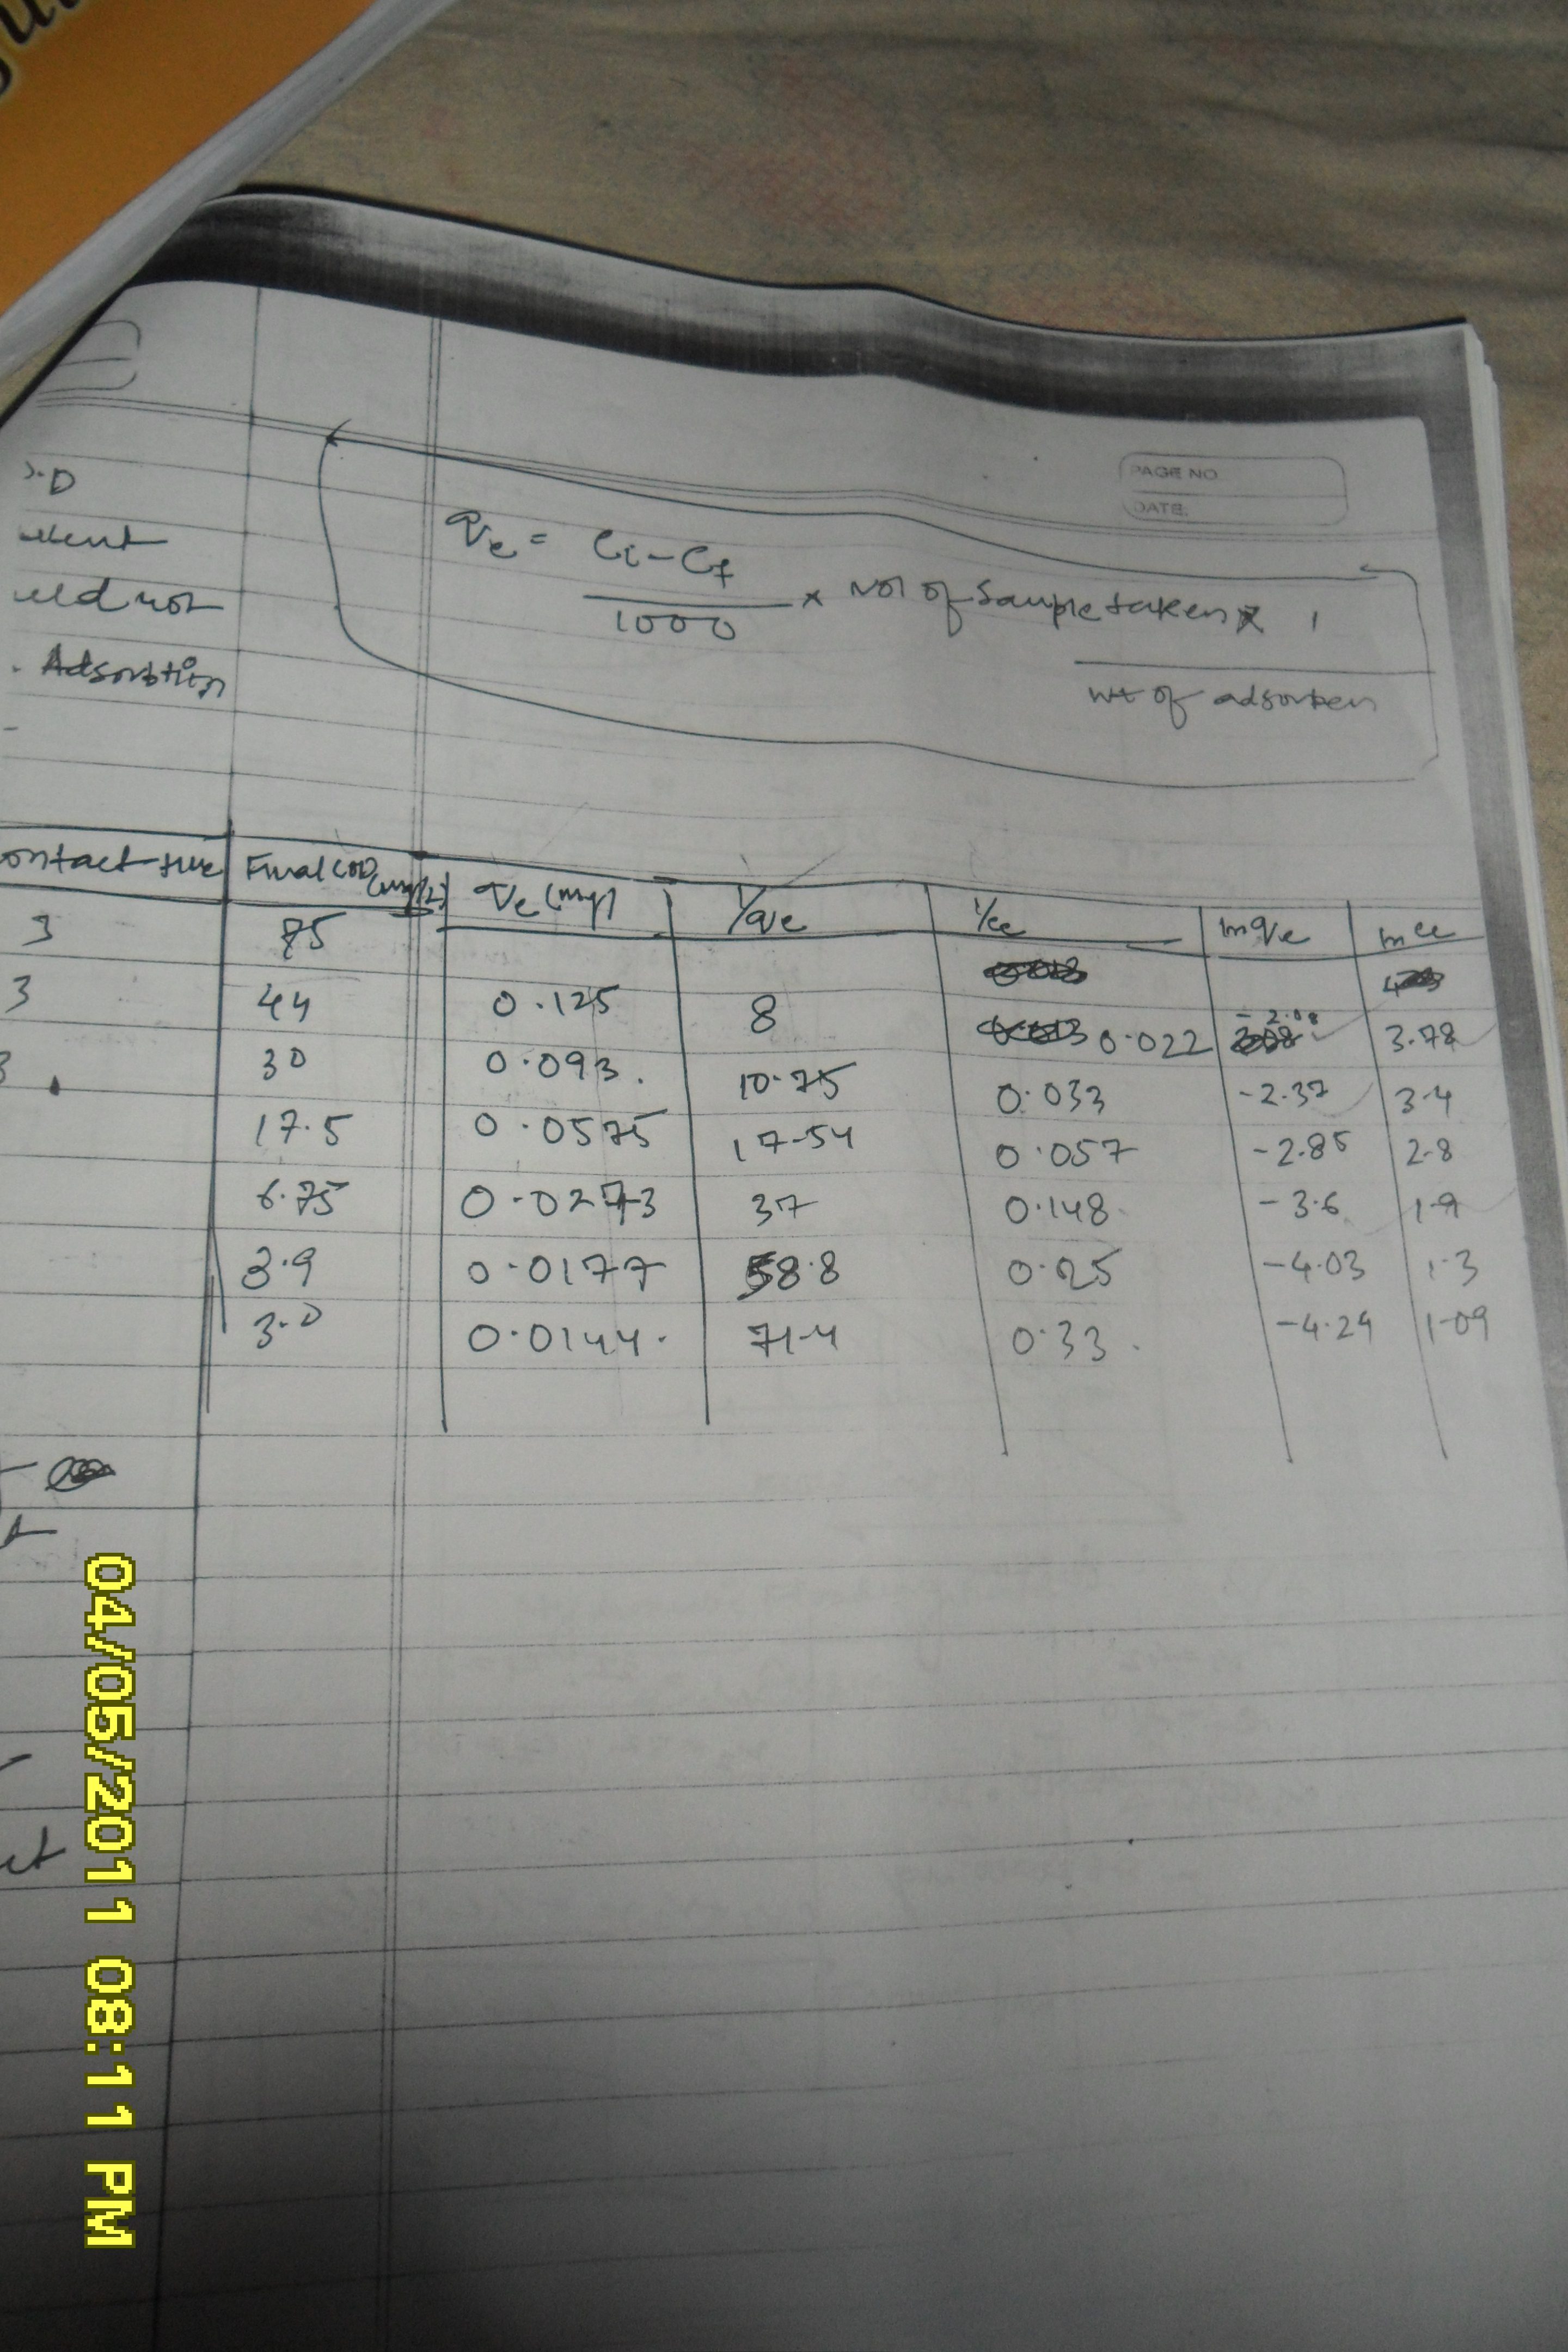 PAGE NO
DATE:
qe = Ci - Cf / 1000 × Vol of sample taken × 1 / wt of adsorben
Adsorbtion
ontact time | Final COD (mg/L) | qe (mg) | 1/qe | 1/Ce | lnqe | ln ce
3 | 75
3 | 44 | 0.125 | 8 | 0.022 | -2.08 | 3.78
3 | 30 | 0.093. | 10.75 | 0.033 | -2.37 | 3.4
17.5 | 0.0575 | 17.54 | 0.057 | -2.85 | 2.8
6.75 | 0.0273 | 37 | 0.148 | -3.6 | 1.9
3.9 | 0.0177 | 58.8 | 0.25 | -4.03 | 1.3
3.0 | 0.0144. | 71.4 | 0.33. | -4.24 | 1.09
04/05/2011 08:11 PM